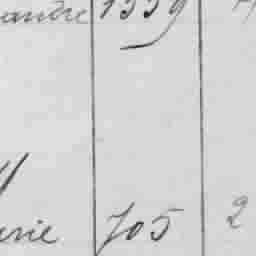 andre 1339
erie 705 2